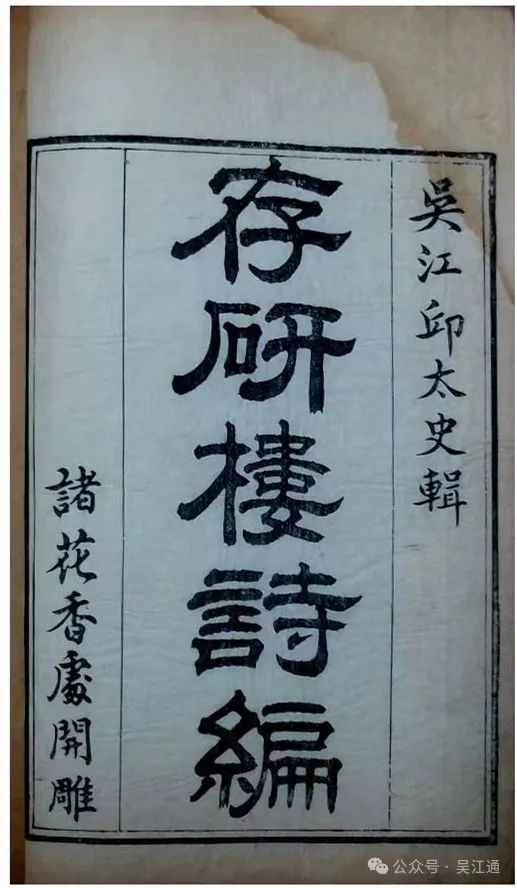 吳江邱太史輯
存研樓詩編
諸花香處開雕
公众号·吴江通